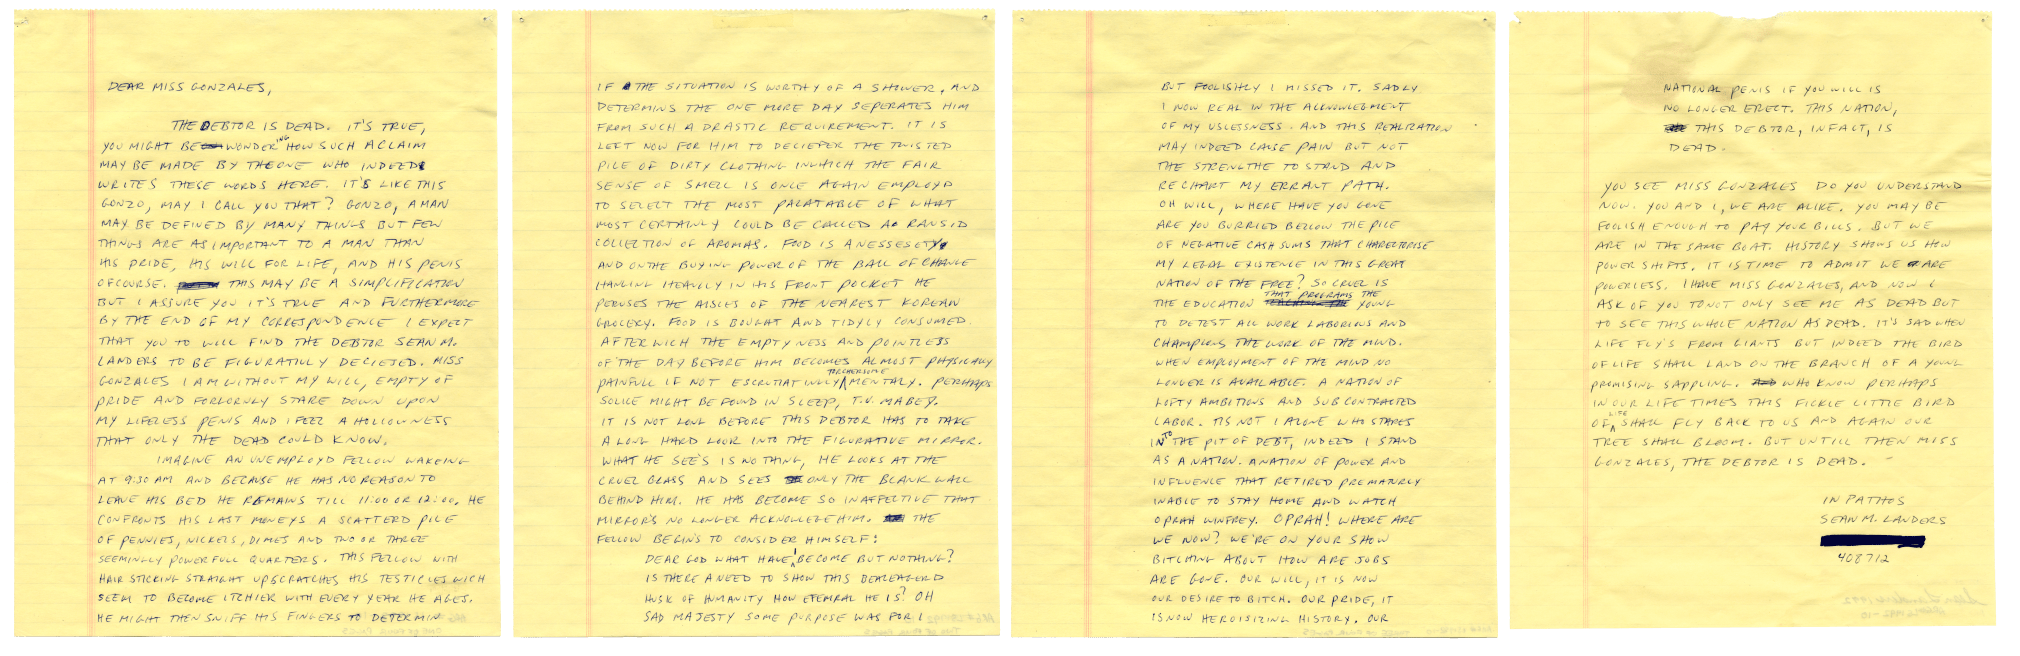 DEAR MISS GONZALES,
THE DEBTOR IS DEAD. IT'S TRUE,
YOU MIGHT BE WONDERING HOW SUCH A CLAIM
MAY BE MADE BY THE ONE WHO INDEED
WRITES THESE WORDS HERE. IT'S LIKE THIS
GONZO, MAY I CALL YOU THAT? GONZO, A MAN
MAY BE DEFINED BY MANY THINGS BUT FEW
THINGS ARE AS IMPORTANT TO A MAN THAN
HIS PRIDE, HIS WILL FOR LIFE, AND HIS PENIS
OFCOURSE. THIS MAY BE A SIMPLIFICATION
BUT I ASSURE YOU IT'S TRUE AND FURTHERMORE
BY THE END OF MY CORRESPONDENCE I EXPECT
THAT YOU TO WILL FIND THE DEBTOR SEAN M.
LANDERS TO BE FIGURATILLY DECIETED. MISS
GONZALES I AM WITHOUT MY WILL, EMPTY OF
PRIDE AND FORLORNLY STARE DOWN UPON
MY LIFELESS PENIS AND I FEEL A HOLLOWNESS
THAT ONLY THE DEAD COULD KNOW.
IMAGINE AN UNEMPLOYD FELLOW WAKEING
AT 9:30 AM AND BECAUSE HE HAS NO REASON TO
LEAVE HIS BED HE REMAINS TILL 11:00 OR 12:00. HE
CONFRONTS HIS LAST MONEYS A SCATTERD PILE
OF PENNIES, NICKELS, DIMES AND TWO OR THREE
SEEMINGLY POWERFULL QUARTERS. THIS FELLOW WITH
HAIR STICKING STRAIGHT UP SCRATCHES HIS TESTICLES WICH
SEEM TO BECOME ITCHIER WITH EVERY YEAR HE AGES.
HE MIGHT THEN SNIFF HIS FINGERS TO DETERMIN
IF THE SITUATION IS WORTHY OF A SHOWER, AND
DETERMINS THE ONE MORE DAY SEPERATES HIM
FROM SUCH A DRASTIC REQUIREMENT. IT IS
LEFT NOW FOR HIM TO DECIEFER THE TWISTED
PILE OF DIRTY CLOTHING INWHICH THE FAIR
SENSE OF SMELL IS ONCE AGAIN EMPLOYD
TO SELECT THE MOST PALATABLE OF WHAT
MOST CERTAINLY COULD BE CALLED A RANSID
COLLECTION OF AROMAS. FOOD IS A NESSESETY
AND ON THE BUYING POWER OF THE BALL OF CHANGE
HANGING HEAVILY IN HIS FRONT POCKET HE
PERUSES THE AISLES OF THE NEAREST KOREAN
GROCERY. FOOD IS BOUGHT AND TIDYLY CONSUMED.
AFTER WICH THE EMPTYNESS AND POINTLESS
OF THE DAY BEFORE HIM BECOMES ALMOST PHYSICALLY
PAINFULL IF NOT ESCRUTIATINGLY TORCHERSOME MENTALY. PERHAPS
SOLICE MIGHT BE FOUND IN SLEEP, T.V. MABEY.
IT IS NOT LONG BEFORE THIS DEBTOR HAS TO TAKE
A LONG HARD LOOK INTO THE FIGURATIVE MIRROR.
WHAT HE SEE'S IS NO THING, HE LOOKS AT THE
CRUEL GLASS AND SEES ONLY THE BLANK WALL
BEHIND HIM. HE HAS BECOME SO INAFFECTIVE THAT
MIRRORS NO LONGER ACKNOLLEGE HIM. THE
FELLOW BEGINS TO CONSIDER HIMSELF:
DEAR GOD WHAT HAVE I BECOME BUT NOTHING?
IS THERE A NEED TO SHOW THIS BEALEAGERD
HUSK OF HUMANITY HOW HE IS? OH
SAD MAJESTY SOME PURPOSE WAS FOR I
BUT FOOLISHLY I MISSED IT. SADLY
I NOW REAL IN THE ACKNOWLEGMENT
OF MY USLESSNESS. AND THIS REALIZATION
MAY INDEED CAUSE PAIN BUT NOT
THE STRENGTHE TO STAND AND
RECHART MY ERRANT PATH.
OH WILL, WHERE HAVE YOU GONE
ARE YOU BURRIED BELLOW THE PILE
OF NEGATIVE CASH SUMS THAT CHARECTORISE
MY LEGAL EXISTENCE IN THIS GREAT
NATION OF THE FREE? SO CRUEL IS
THE EDUCATION THAT PROGRAMS THE YOUNG
TO DETEST ALL WORK LABORIOUS AND
CHAMPIONS THE WORK OF THE MIND.
WHEN EMPLOYMENT OF THE MIND NO
LONGER IS AVAILABLE. A NATION OF
LOFTY AMBITIONS AND SUB CONTRACTED
LABOR. TIS NOT I ALONE WHO STARES
INTO THE PIT OF DEBT, INDEED I STAND
AS A NATION. A NATION OF POWER AND
INFLUENCE THAT RETIRED PREMATURLY
INABLE TO STAY HOME AND WATCH
OPRAH WINFREY. OPRAH! WHERE ARE
WE NOW? WE'RE ON YOUR SHOW
BITCHING ABOUT HOW ARE JOBS
ARE GONE. OUR WILL, IT IS NOW
OUR DESIRE TO BITCH. OUR PRIDE, IT
IS NOW HEROISIZING HISTORY. OUR
NATIONAL PENIS IF YOU WILL IS
NO LONGER ERECT. THIS NATION,
THIS DEBTOR, INFACT, IS
DEAD.
YOU SEE MISS GONZALES DO YOU UNDERSTAND
NOW. YOU AND I, WE ARE ALIKE. YOU MAY BE
FOOLISH ENOUGH TO PAY YOUR BILLS. BUT WE
ARE IN THE SAME BOAT. HISTORY SHOWS US HOW
POWER SHIFTS. IT IS TIME TO ADMIT WE ARE
POWERLESS. I HAVE MISS GONZALES, AND NOW I
ASK OF YOU TO NOT ONLY SEE ME AS DEAD BUT
TO SEE THIS WHOLE NATION AS DEAD. IT'S SAD WHEN
LIFE FLY'S FROM GIANTS BUT INDEED THE BIRD
OF LIFE SHALL LAND ON THE BRANCH OF A YOUNG
PROMISING SAPPLING. WHO KNOW PERHAPS
IN OUR LIFE TIMES THIS FICKLE LITTLE BIRD
OF LIFE SHALL FLY BACK TO US AND AGAIN OUR
TREE SHALL BLOOM. BUT UNTILL THEN MISS
GONZALES, THE DEBTOR IS DEAD.
IN PATHOS
SEAN M. LANDERS
408712